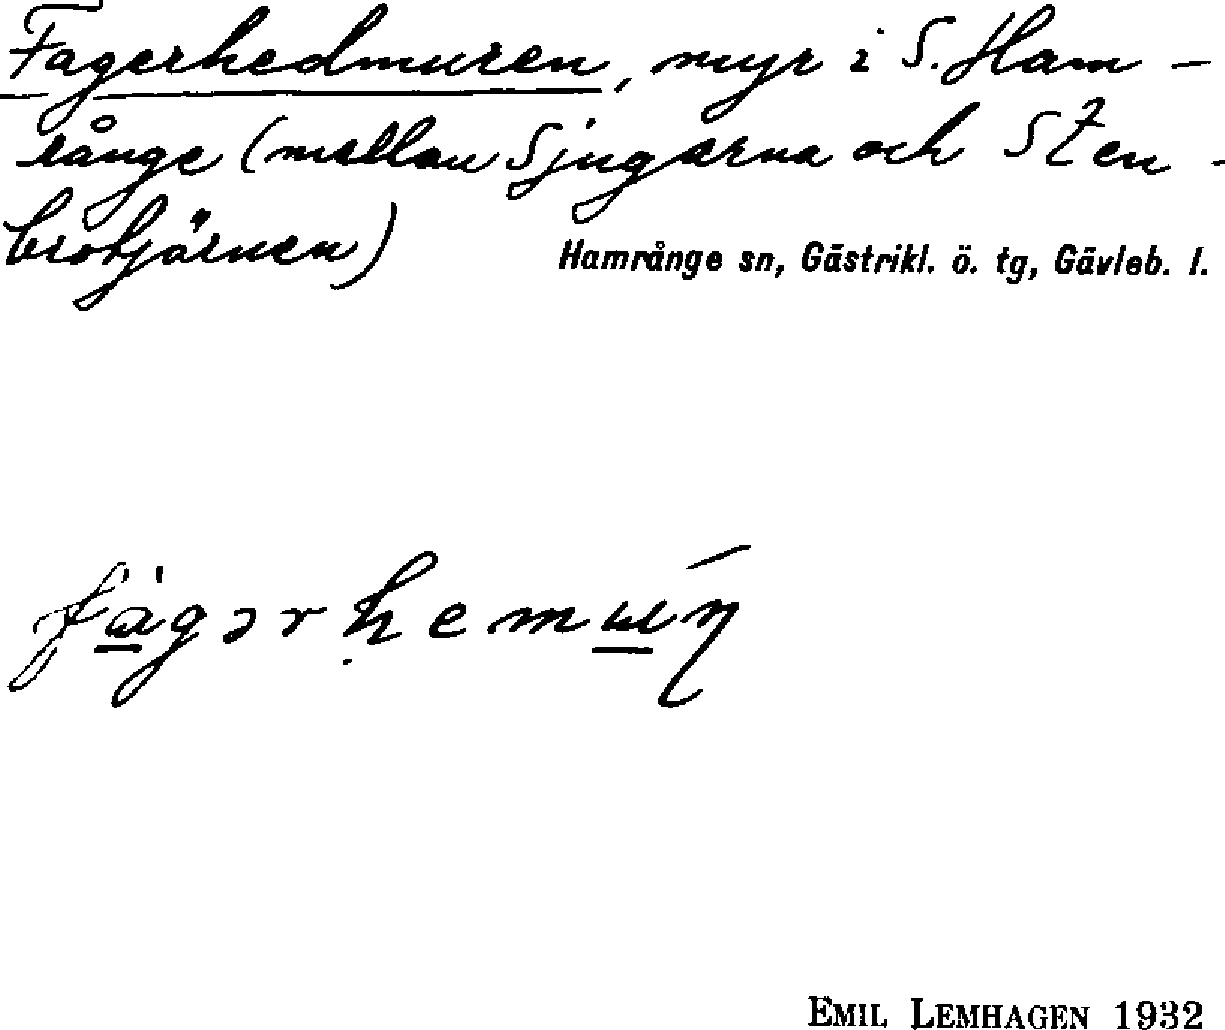 Fagerhedmuren, myr i S. Ham-
rånge (mellan Sjugarna och Sten-
brotjärnen)
Hamrånge sn, Gästrikl. ö. tg, Gävleb. l.
EMIL LEMHAGEN 1932